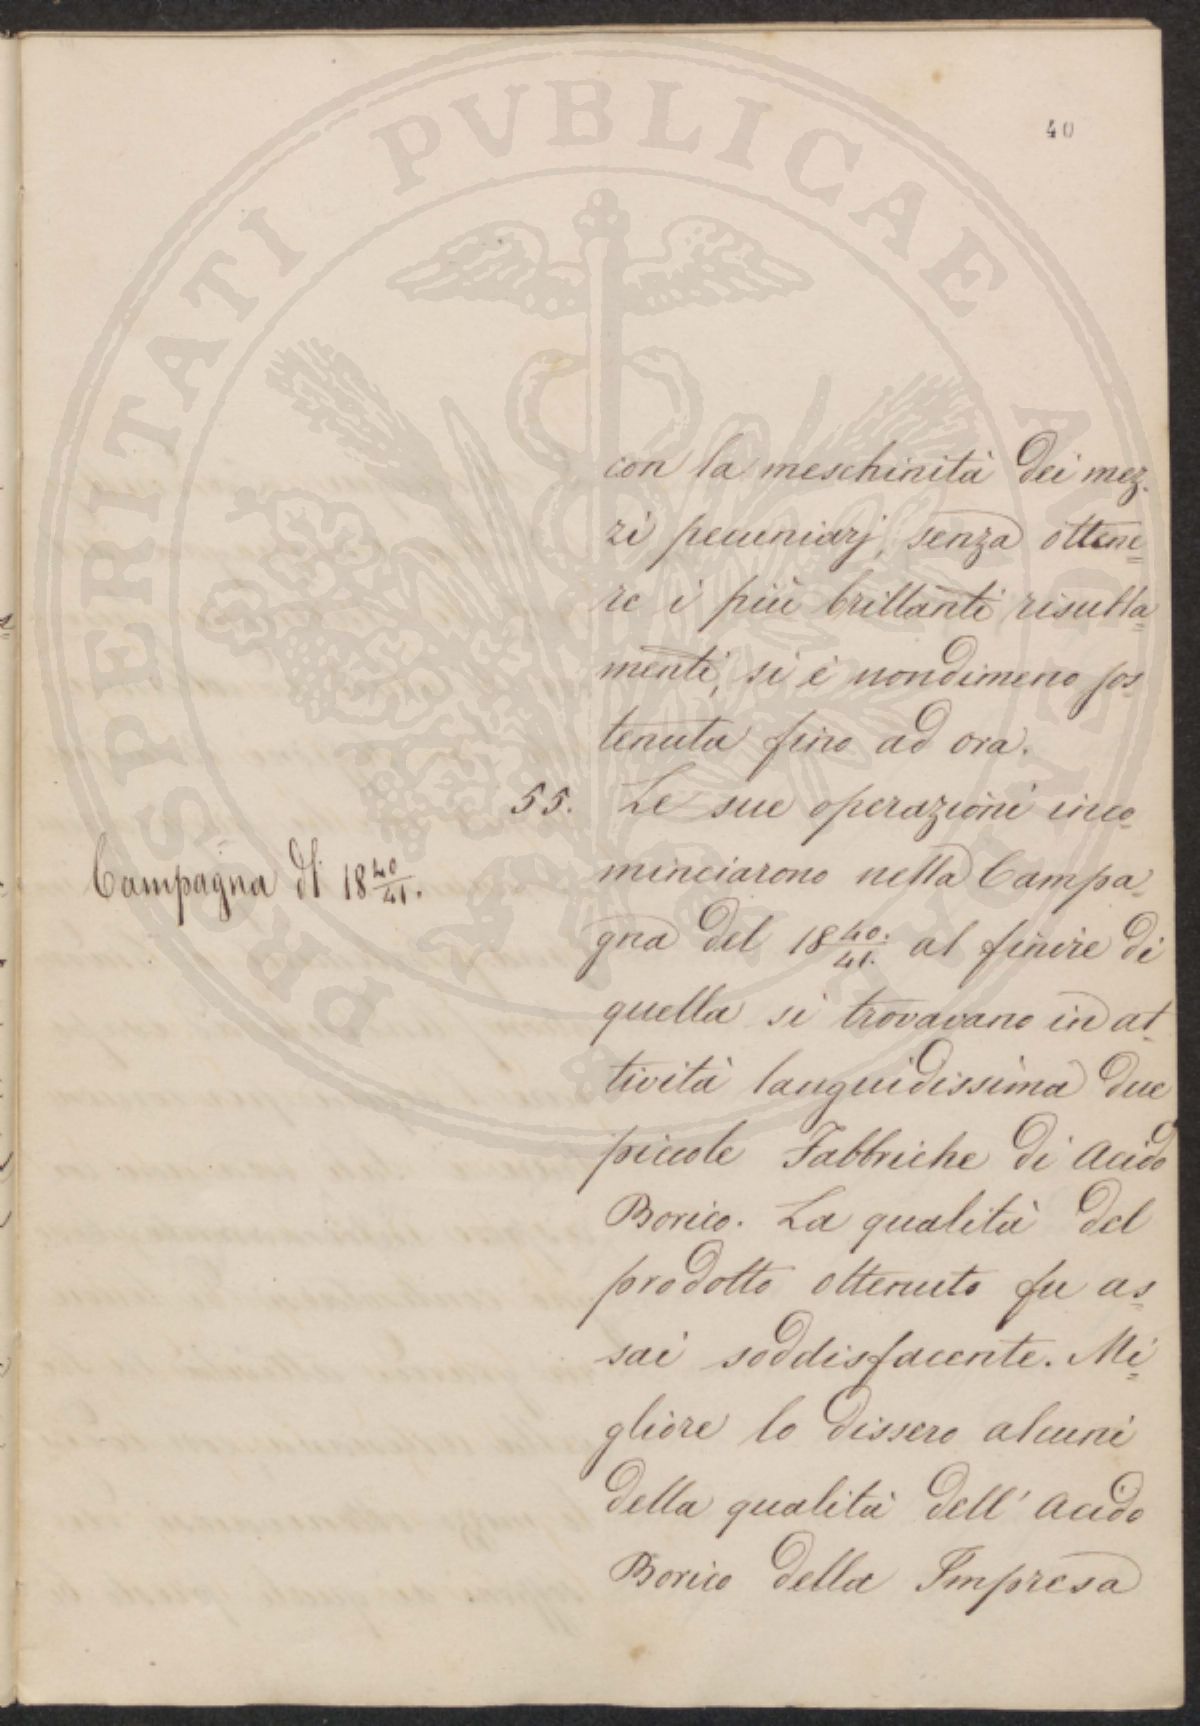 PROSPERITATI PVBLICAE AVGENDAE
40
con la meschinità dei mez-
zi pecuniarj, senza ottene-
re i più brillanti risulta-
menti, si è nondimeno sos-
tenuta fino ad ora.
55. Le sue operazioni inco-
minciarono nella Campa-
Campagna del 18 40/41.
gna del 18 40./41. al finire di
quella si trovavano in at-
tività languidissima due
piccole Fabbriche di Acido
Borico. La qualità del
prodotto ottenuto fu as-
sai soddisfacente. Mi-
gliore lo dissero alcuni
della qualità dell' Acido
Borico della Impresa